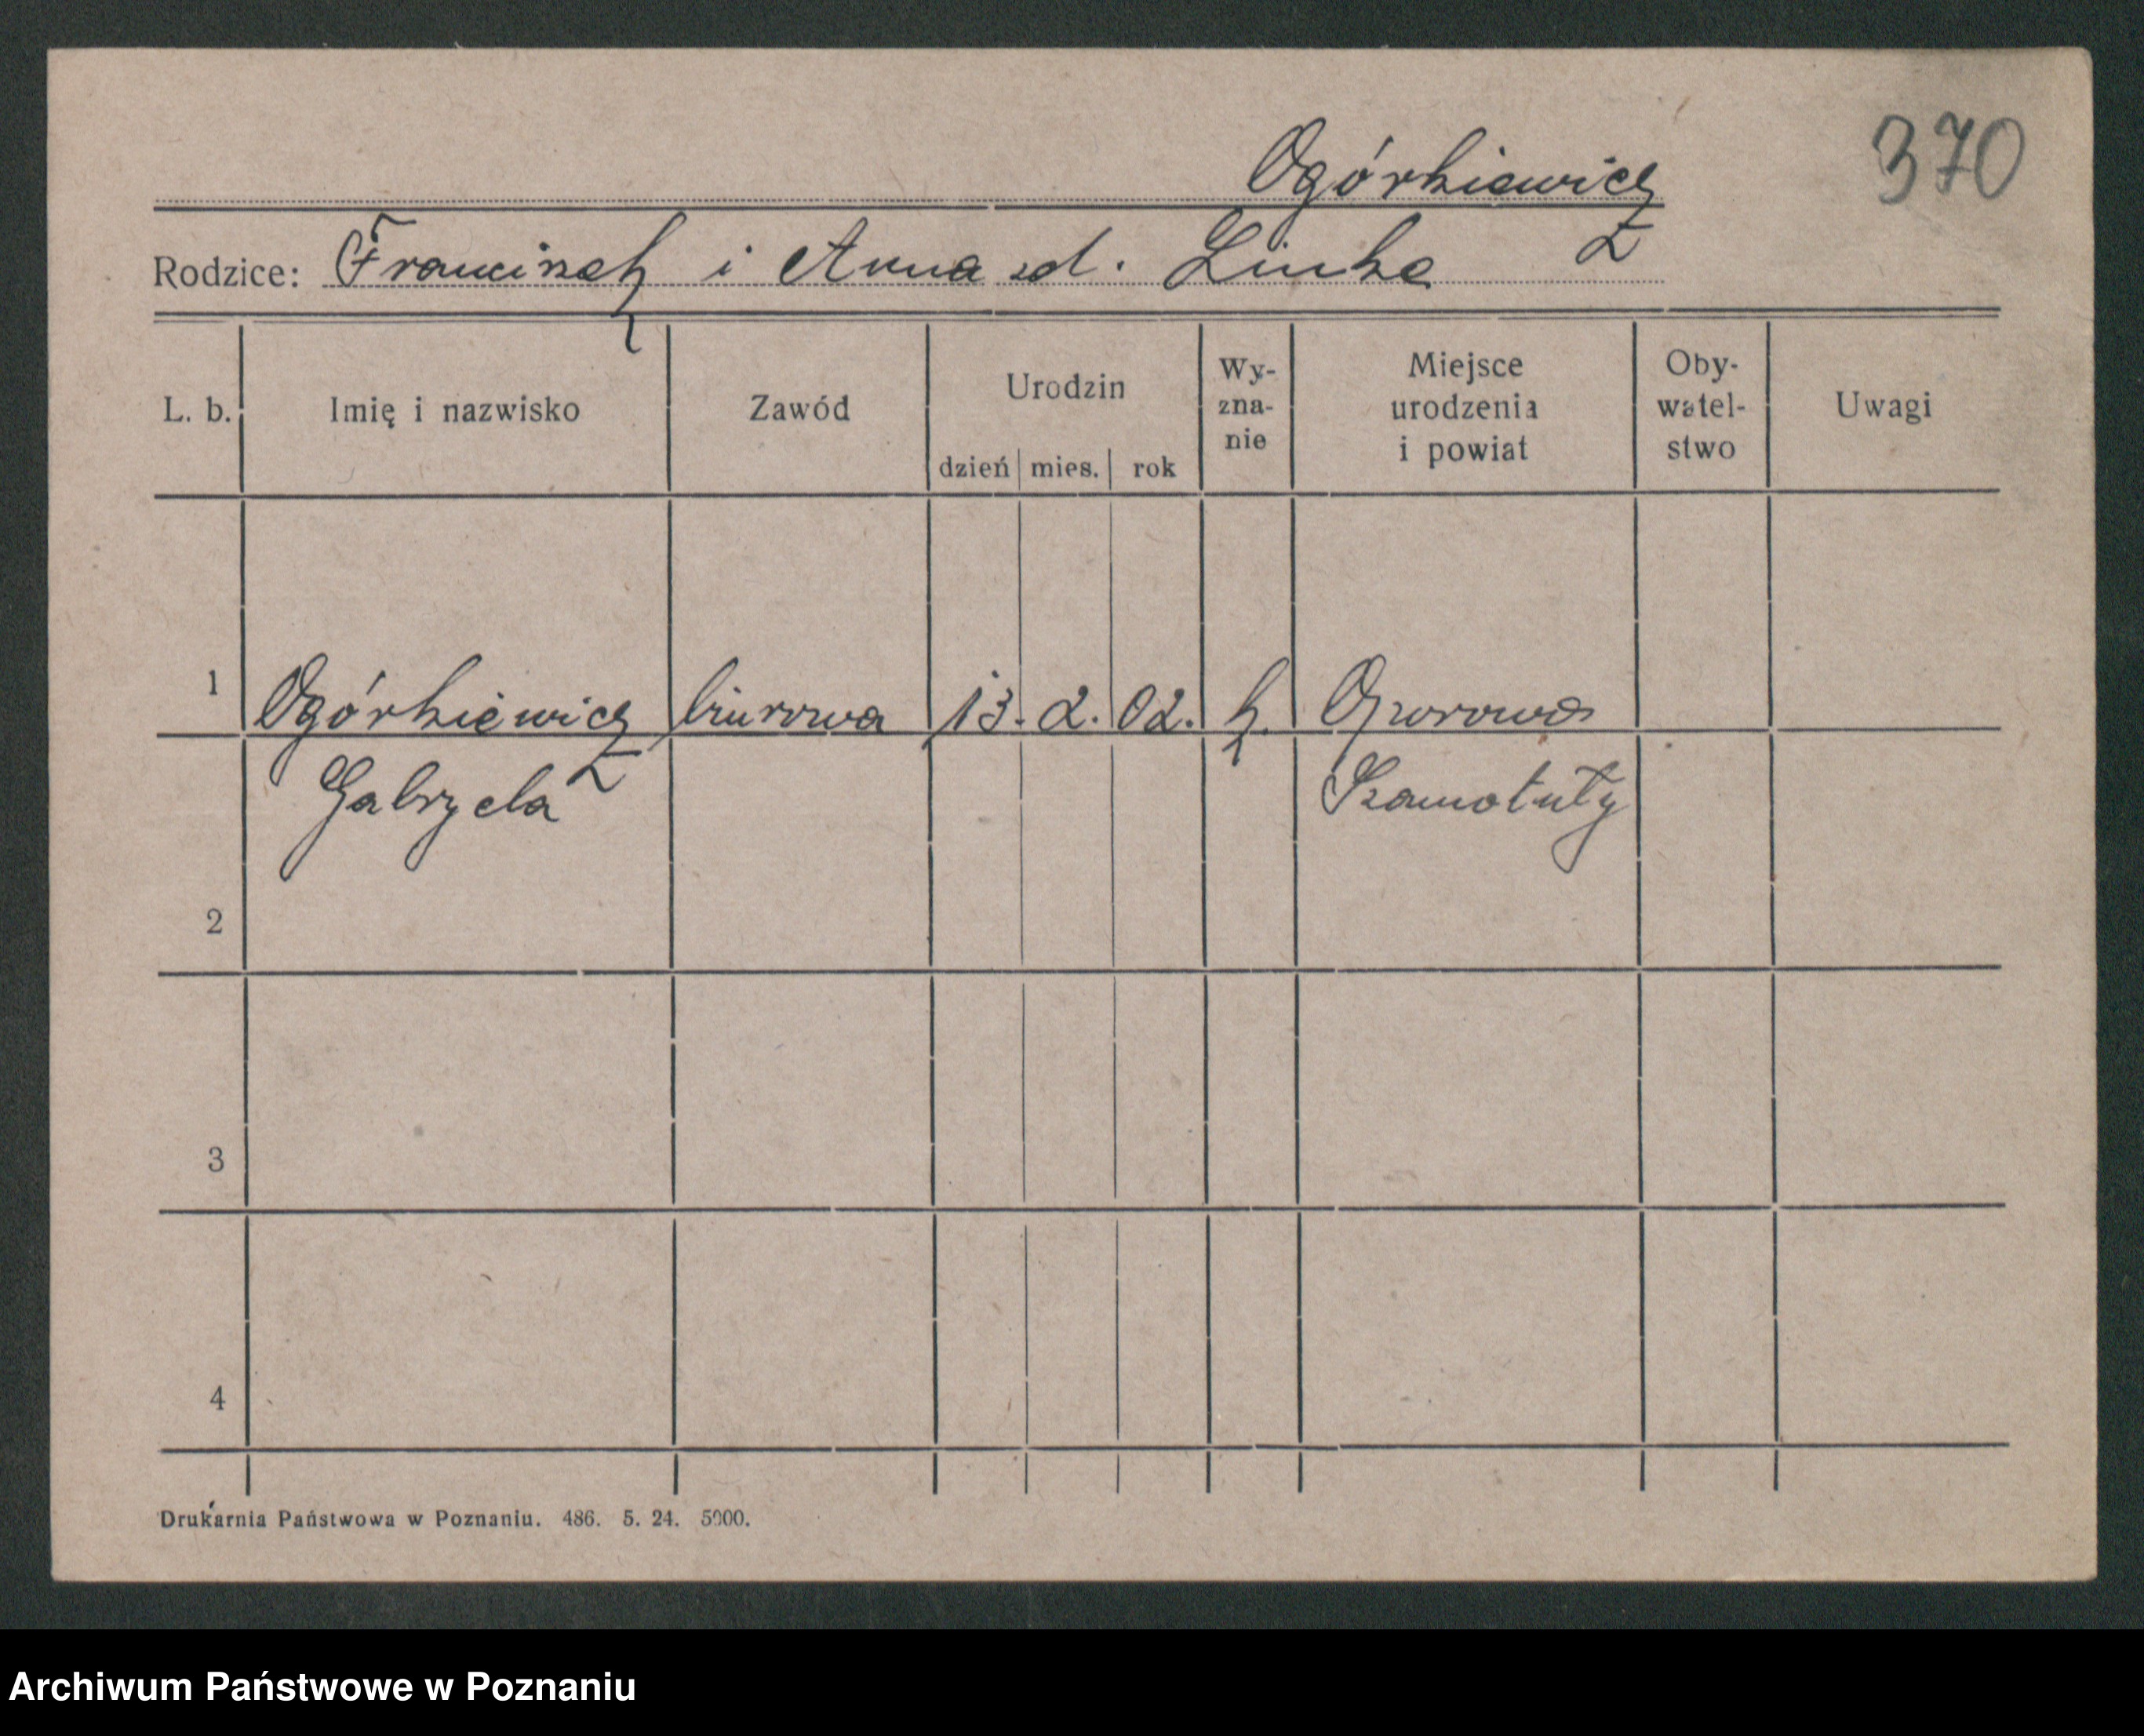 370
Ogórkiewicz
Rodzice: Franciszek i Anna zd. Linke
L. b. Imię i nazwisko Zawód Urodzin dzień mies. rok Wy-zna-nie Miejsce urodzenia i powiat Oby-watel-stwo Uwagi
1 Ogórkiewicz biurowa 13. 2. 02. k.
Gabryela Szamotuły
2
3
4
Drukarnia Państwowa w Poznaniu. 486. 5. 24. 5000.
Archiwum Państwowe w Poznaniu